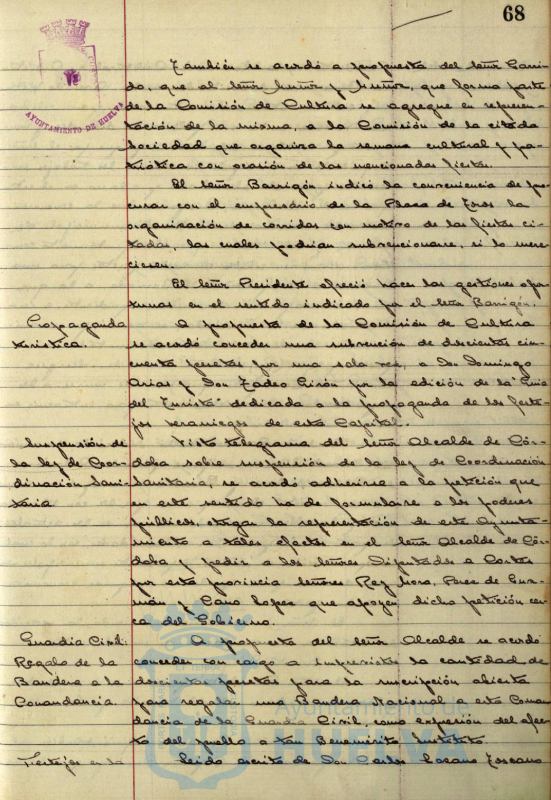 68
AYUNTAMIENTO DE HUELVA
También se acordó a propuesta del señor Garri-
do, que el señor Muñoz y Muñoz, que forma parte
de la Comisión de Cultura se agregue en represen-
tación de la misma, a la Comisión de la citada
Sociedad que organiza la semana cultural y pa-
triótica con ocasión de las mencionadas fiestas.
El señor Barrigón indicó la conveniencia de pro-
curar con el empresario de la Plaza de Toros la
organización de corridas con motivo de las fiestas ci-
tadas, las cuales podrían subvencionarse, si lo mere-
ciesen.
El señor Presidente ofreció hacer las gestiones opor-
tunas en el sentido indicado por el señor Barrigón.
Propaganda
turística.
A propuesta de la Comisión de Cultura
se acordó conceder una subvención de doscientas cin-
cuenta pesetas por una sola vez, a Don Domingo
Arias y Don Tadeo Girón por la edición de la "Guía
del Turista" dedicada a la propaganda de los feste-
jos veraniegos de esta Capital.
Suspensión de
la ley de Coor-
dinación Sani-
taria
Visto telegrama del señor Alcalde de Cór-
doba sobre suspensión de la ley de Coordinación
Sanitaria, se acordó adherirse a la petición que
en este sentido ha de formularse a los poderes
públicos, otorgar la representación de este Ayunta-
miento a tales efectos en el señor Alcalde de Cór-
doba y pedir a los señores Diputados a Cortes
por esta provincia señores Rey Mora, Pérez de Guz-
mán y Cano López que apoyen dicha petición cer-
ca del Gobierno.
Guardia Civil:
Regalo de la
Bandera a la
Comandancia.
A propuesta del señor Alcalde se acordó
conceder con cargo a imprevistos la cantidad de
doscientas pesetas para la suscripción abierta
para regalar una Bandera Nacional a esta Coman-
dancia de la Guardia Civil, como expresión del afec-
to del pueblo a tan Benemérito Instituto.
Festejos en la
Leído escrito de Don Carlos Lozano Toscano
Ayuntamiento de
HUELVA